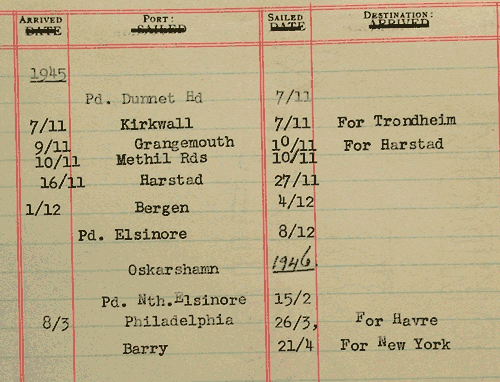 ARRIVED PORT: SAILED DESTINATION:
DATE SAILED DATE ARRIVED
1945
Pd. Dunnet Hd 7/11
7/11 Kirkwall 7/11 For Trondheim
9/11 Grangemouth 10/11 For Harstad
10/11 Methil Rds 10/11
16/11 Harstad 27/11
1/12 Bergen 4/12
Pd. Elsinore 8/12
Oskarshamn 1946.
Pd. Nth.Elsinore 15/2
8/3 Philadelphia 26/3, For Havre
Barry 21/4 For New York